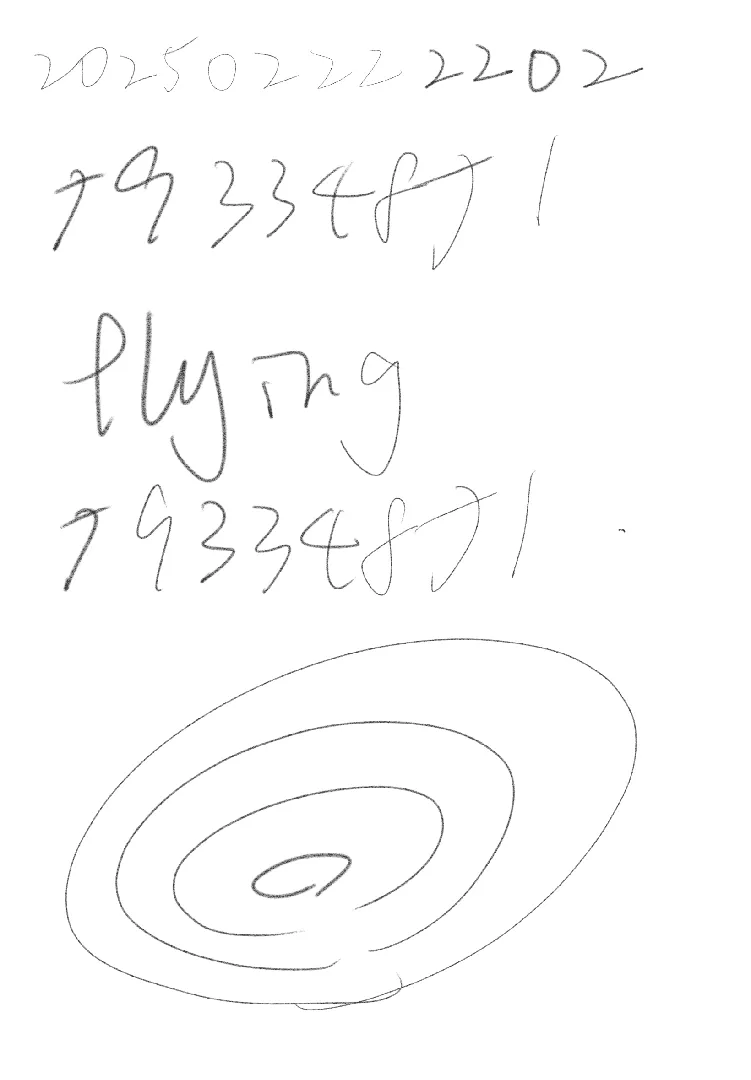 202502222202
79334871
flying
79334871